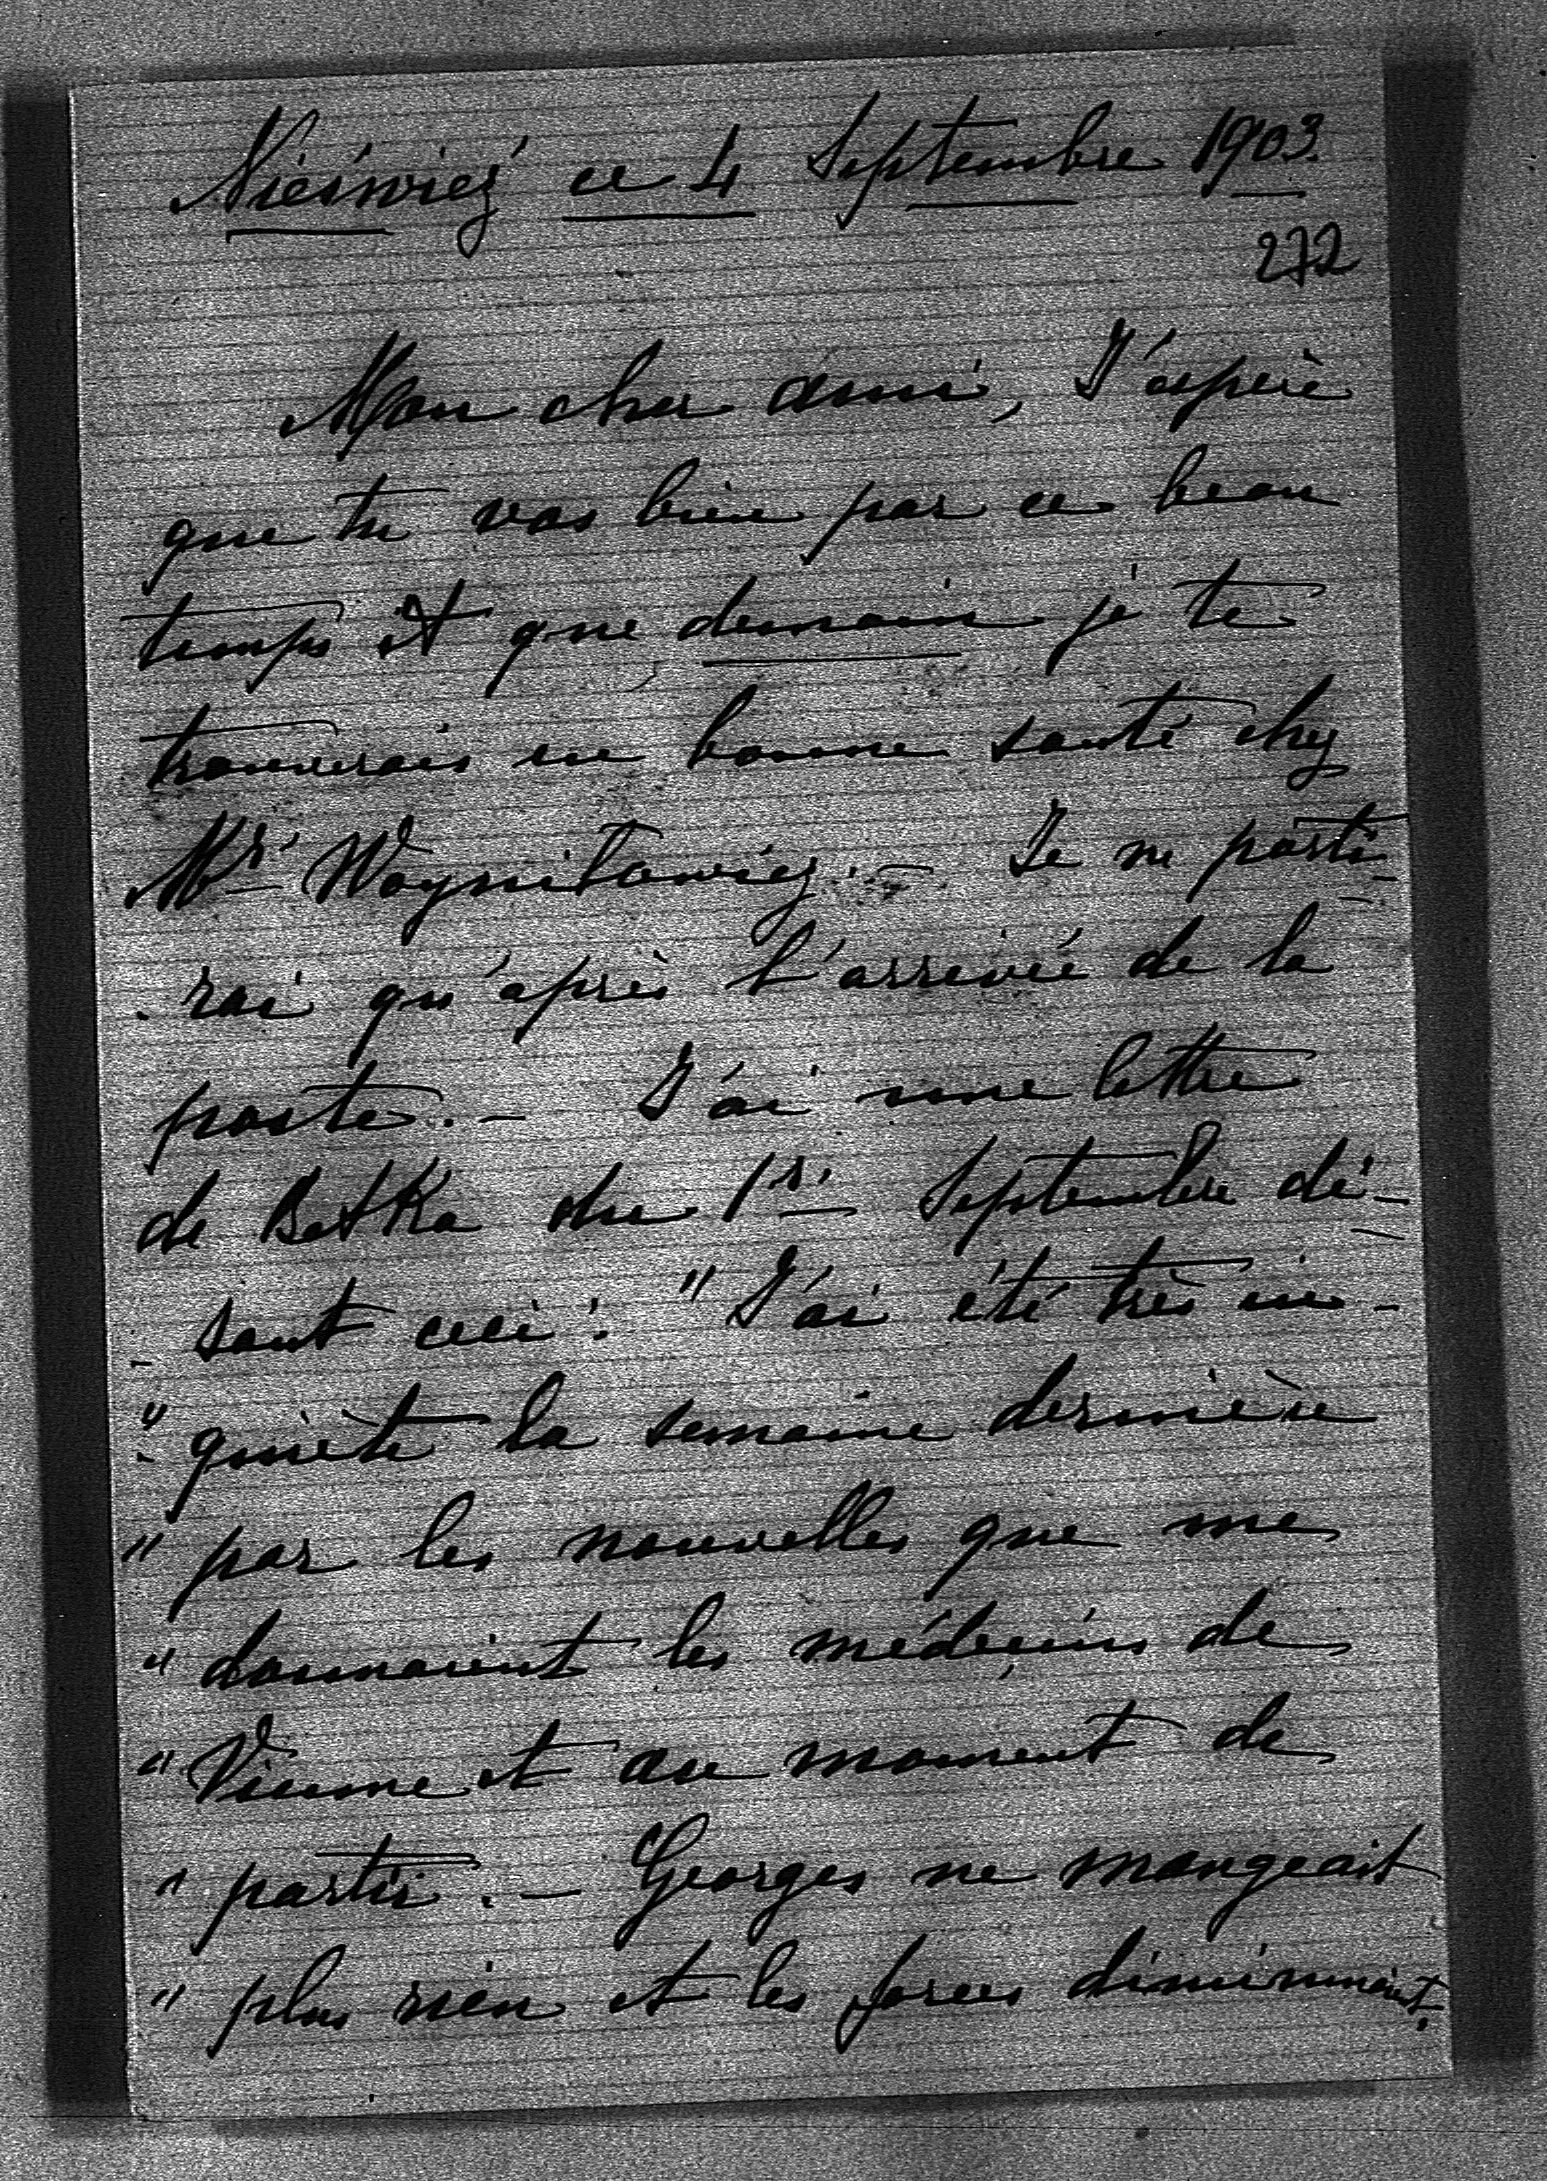 Nieświéź ce 4 Septembre 1903.
272
Mon cher ami, J'espère
que tu vas bien par ce beau
temps et que demain je te
trouverais en bonne santé chez
Mr. Woynitowicz. – Je ne parti-
- rai qu'après l'arrivée de la
poste. – J'ai une lettre
de Betka du 1r. Septembre di-
- sant ceci: "J'ai été très in-
" quiète la semaine dernière
" par les nouvelles que me
" donnaient les médecins de
" Vienne et au moment de
" partir. – Georges ne mangeait
" plus rien et les forces diminuaient.